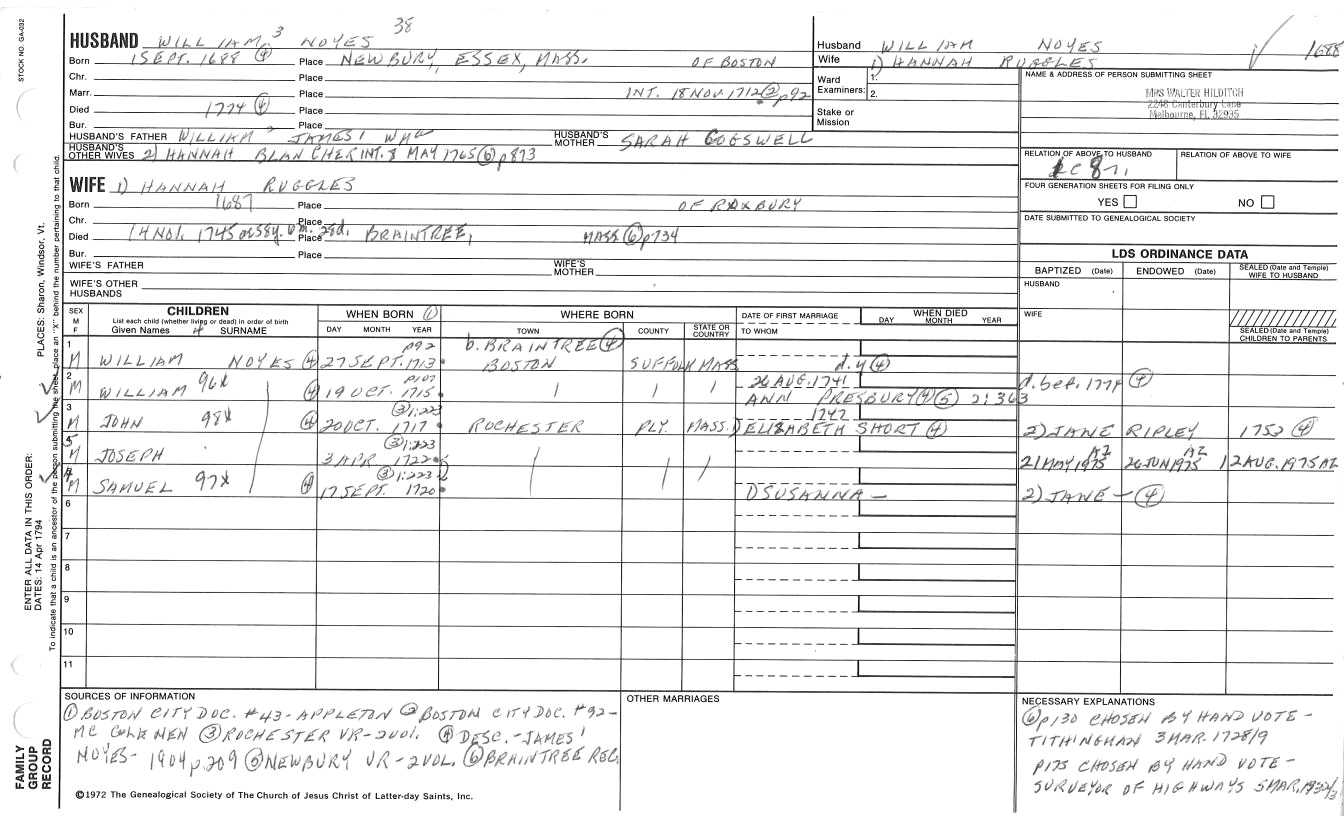 STOCK NO. GA-032
38
HUSBAND WILLIAM 3 NOYES
Born 1 SEPT. 1688 ④ Place NEWBURY, ESSEX, MASS. OF BOSTON
Chr. Place
Marr. Place INT. 18 NOV. 1712 ② p92
Died 1774 ④ Place
Bur. Place
HUSBAND'S FATHER WILLIAM 2 JAMES 1 HUSBAND'S MOTHER SARAH COGSWELL
HUSBAND'S OTHER WIVES 2) HANNAH BLANCHER INT. 8 MAY 1765 ⑥ p873
WIFE 1) HANNAH RUGGLES
Born 1687 Place OF ROXBURY
Chr. Place
Died 14 NOV. 1745 Place BRAINTREE, MASS ⑥ p734
Bur. Place
WIFE'S FATHER WIFE'S MOTHER
WIFE'S OTHER HUSBANDS
Husband WILLIAM NOYES 1688
Wife 1) HANNAH RUGGLES
Ward Examiners: 1. 2.
Stake or Mission
NAME & ADDRESS OF PERSON SUBMITTING SHEET
MRS WALTER HILDITCH
2248 Canterbury Lane
Melbourne, FL 32935
RELATION OF ABOVE TO HUSBAND RELATION OF ABOVE TO WIFE
FOUR GENERATION SHEETS FOR FILING ONLY
YES NO
DATE SUBMITTED TO GENEALOGICAL SOCIETY
LDS ORDINANCE DATA
BAPTIZED (Date) ENDOWED (Date) SEALED (Date and Temple) WIFE TO HUSBAND
HUSBAND
WIFE
SEALED (Date and Temple) CHILDREN TO PARENTS
SEX M F
CHILDREN
List each child (whether living or dead) in order of birth
Given Names SURNAME
WHEN BORN ①
DAY MONTH YEAR
WHERE BORN
TOWN COUNTY STATE OR COUNTRY
DATE OF FIRST MARRIAGE
TO WHOM
WHEN DIED
DAY MONTH YEAR
1 p92 b. BRAINTREE ④
M WILLIAM NOYES ④ 27 SEPT. 1713 BOSTON SUFFOLK MASS d.y ④
2 96X p107 26 AUG. 1741 d. Sep. 1774 ④
M WILLIAM ④ 19 OCT. 1715 ANN PRESBURY ④ ⑤ 2:363
3 98X ③ 1:223 1747
M JOHN ④ 20 OCT. 1717 ROCHESTER PLY. MASS. 1) ELIZABETH SHORT ④ 2) JANE RIPLEY 1753 ④
5 ③ 1:223
M JOSEPH 3 APR 1722 21 MAY 1975 AZ 26 JUN 1975 AZ 12 AUG. 1975 AZ
4 97X ③ 1:223
M SAMUEL ④ 17 SEPT. 1720 1) SUSANNA — 2) JANE — ④
6
7
8
9
10
11
SOURCES OF INFORMATION
① BOSTON CITY DOC. #43 - APPLETON ② BOSTON CITY DOC. #92 -
③ ROCHESTER VR - 2 VOL. ④ DESC. - JAMES 1
NOYES - 1904 p.209 ⑤ NEWBURY VR - 2 VOL. ⑥ BRAINTREE REC.
OTHER MARRIAGES
NECESSARY EXPLANATIONS
⑥ p130 CHOSEN BY HAND VOTE -
TITHINGMAN 3 MAR. 1728/9
P175 CHOSEN BY HAND VOTE -
SURVEYOR OF HIGHWAYS 5 MAR.
©1972 The Genealogical Society of The Church of Jesus Christ of Latter-day Saints, Inc.
FAMILY GROUP RECORD
ENTER ALL DATA IN THIS ORDER:
DATES: 14 Apr 1794 PLACES: Sharon, Windsor, Vt.
To indicate that a child is an ancestor of the person submitting the sheet, place an "X" behind the number pertaining to that child.